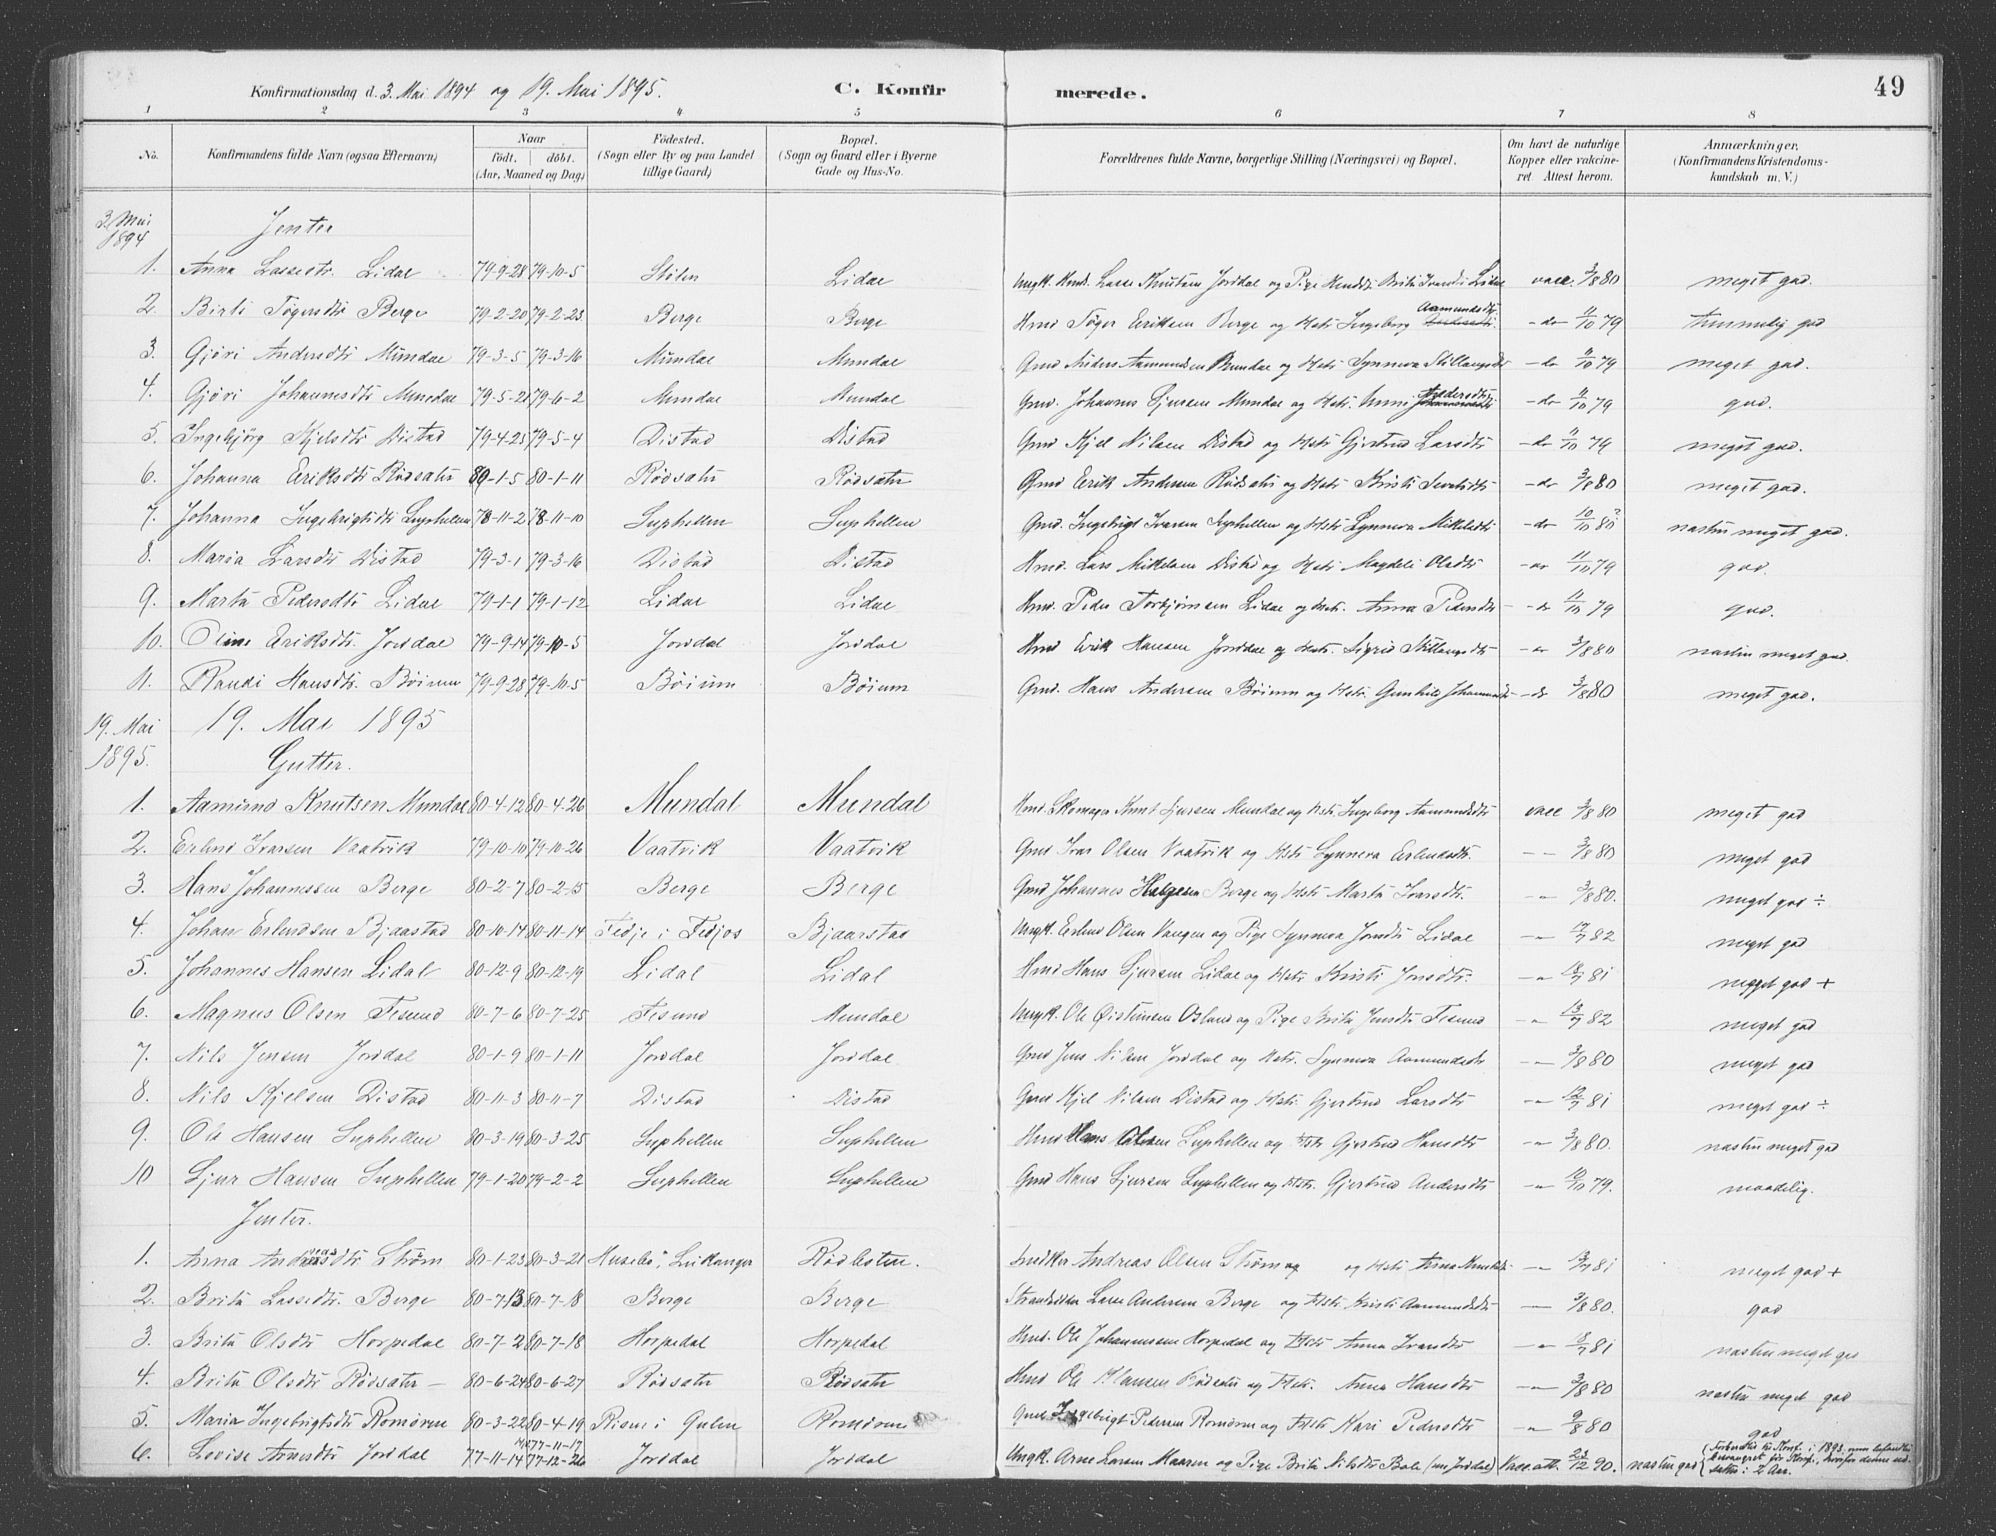 Konfirmationsdag d. 3. Mai 1894 og 19. Mai 1895. C. Konfirmerede. 49
1 2 3 4 5 6 7 8
No. Konfirmandens fulde Navn (ogsaa Efternavn) Naar født. døbt. (Aar, Maaned og Dag) Fødested. (Sogn eller By og paa Landet tillige Gaard) Bopæl. (Sogn og Gaard eller i Byerne Gade og Hus-No. Forældrenes fulde Navne, borgerlige Stilling (Næringsvei) og Bopæl. Om havt de naturlige Kopper eller vakcineret. Attest herom. Anmærkninger. (Konfirmandens Kristendomskundskab m. V.)
3. Mai 1894 Jenter
1. Anna Lassedtr. Lidal 79-9-28 79-10-5 Stølen Lidal Ungk. Hmd. Lasse Knutsen Jordal og Pige Brita Ivarsdtr Lidal vacc. 3/8 80 meget god.
2. Birti Tøgersdtr Berge 79-2-20 79-2-23 Berge Berge Hmd Tøger Eriksen Berge og Hstr Ingeborg Aamundsdtr. - do 11/10 79 temmelig god
3. Gjøri Andersdtr Mundal 79-3-5 79-3-16 Mundal Mundal Gmd Anders Aamundsen Mundal og Hstr Synneva Stillaugsdtr - do 11/10 79 meget god.
4. Gjøri Johannesdtr Mundal 79-5-21 79-6-2 Mundal Mundal Gmd. Johannes Sjursen Mundal og Hstr. Anna Andersdtr - do 11/10 79 god.
5. Ingebjørg Kjelsdtr Distad 79-4-25 79-5-4 Distad Distad Gmd Kjel Nilsen Distad og Hstr Gjertrud Larsdtr - do 11/10 79 meget god.
6. Johanna Eriksdtr Rødsæter 80-1-5 80-1-11 Rødsæter Rødsæter Gmd Erik Andersen Rødsæter og Hstr Kristi - do 3/8 80 meget god.
7. Johanna Ingebrigtsdtr Suphellen 78-11-2 78-11-10 Suphellen Suphellen Gmd. Ingebrigt Ivarsen Suphellen og Hstr Synneva Mikkelsdtr - do 10/10 80? næsten meget god.
8. Maria Larsdtr Distad 79-3-1 79-3-16 Distad Distad Hmd. Lars Mikkelsen Distad og Hstr Magdeli Olsdtr - do 11/10 79 god.
9. Marta Pedersdtr Lidal 79-1-1 79-1-12 Lidal Lidal Hmd. Peder Torbjørnsen Lidal og Hstr. Anna Pedersdtr - do 11/10 79 god.
10. Oline Eriksdtr. Jordal 79-9-14 79-10-5 Jordal Jordal Hmd Erik Hansen Jordal og Hstr. Sigrid Stillaugsdtr - do 3/8 80 næsten meget god.
11. Randi Hansdtr. Bøium 79-9-28 79-10-5 Bøium Bøium Gmd. Hans Andersen Bøium og Hstr. Gunhild Johannesdtr - do 3/8 80 meget god.
19. Mai 1895. 19. Mai 1895
Gutter.
1. Aamund Knutsen Mundal 80-4-12 80-4-26 Mundal Mundal Hmd. Skomager Knut Sjursen Mundal og Hstr Ingeborg Aamundsdtr vacc 3/8 80 meget god
2. Erlend Ivarsen Vaatvik 79-10-10 79-10-26 Vaatvik Vaatvik Gmd Ivar Olsen Vaatvik og Hstr Synneva Erlendsdtr. - - 3/8 80 meget god
3. Hans Johannessen Berge 80-2-7 80-2-15 Berge Berge Gmd Johannes Helgesen Berge og Hstr Marta Ivarsdtr. - " 3/8 80. meget god ÷
4. Johan Erlendsen Bjaastad 80-10-14 80-11-14 Fedje i Fedjos Bjaarstad Ungk. Erlend Olsen Vangen og Pige Synneva Jonsdtr Lidal - " 82 meget god
5. Johannes Hansen Lidal 80-12-9 80-12-19 Lidal Lidal Hmd Hans Sjursen Lidal og Hstr Kristi Jonsdtr. - " 81 meget god +
6. Magnus Olsen Fesund 80-7-6 80-7-25 Fesund Mundal Ungk. Ole Øistensen Osland og Pige Brita Jensdtr Fesund - " 13/7 82 meget god
7. Nils Jensen Jordal 80-1-9 80-1-11 Jordal Jordal Gmd Jens Nilsen Jordal og Hstr. Synneva Aamundsdtr - " 3/8 80 meget god
8. Nils Kjelsen Distad 80-11-3 80-11-7 Distad Distad Gmd Kjel Nilsen Distad og Hstr. Gjertrud Larsdtr - " 81 meget god ÷
9. Ole Hansen Suphellen 80-3-19 80-3-25 Suphellen Suphellen Hmd Hans Olsen Suphellen og Hstr Gjertrud Hansdtr - " 3/8 80. næsten meget god
10 Sjur Hansen Suphellen 79-1-20 79-2-2 Suphellen Suphellen Gmd Hans Sjursen Suphellen og Hstr. Gjertrud Andersdtr - " 10/10 79. maadelig.
Jenter.
1. Anna Andreasdtr Strøm 80-1-23 80-3-21 Husebø, Leikanger Rødbotten. Snedker Andreas Olsen Strøm og Hstr. Anna - " 81 meget god +
2. Brita Lassedtr. Berge 80-7-13 80-7-18 Berge Berge Strandsidder Lasse Andersen Berge og Hstr Kristi Aamundsdtr - 3/8 80. god
3. Brita Olsdtr Horpedal 80-7-2 80-7-18 Horpedal Horpedal Hmd. Ole Johannessen Horpedal og Hstr Anna Ivarsdtr - " 81 næsten meget god
4. Brita Olsdtr Rødsæter 80-6-24 80-6-27 Rødsæter Rødsæter Hmd Ole Hansen Rødsæter og Hstr. Anna Hansdtr - " 3/8 80 næsten meget god
5. Maria Ingebrigtsdtr Romøren 80-3-22 80-4-19 Risne i Gulen Romøren Gmd Ingebrigt Pedersen Romøren og Hstr Kari Pedersdtr - " 80 god
6. Lovise Arnesdtr Jordal 77-11-14 77-11-17 77-12-26 Jordal Jordal Ungk. Arne Larsen Maaren og Pige Brita Nilsdtr Bale (nu Jordal) Vacc.att. 23/12 90. næsten god { Forberedtes til Konf. i 1893, men befandtes for Konf., hvorfor denne i 2 Aar.